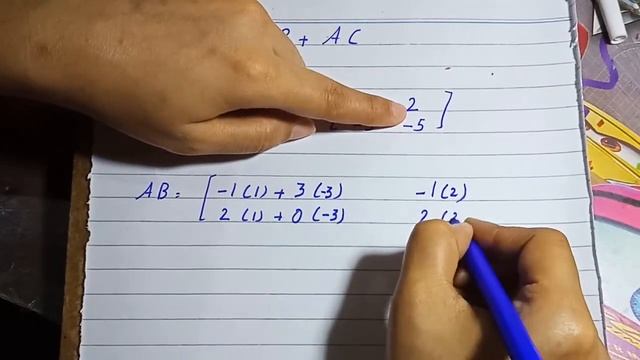 + AC
2 ]
-5
AB = [ -1 (1) + 3 (-3) -1 (2)
2 (1) + 0 (-3) 2 (2